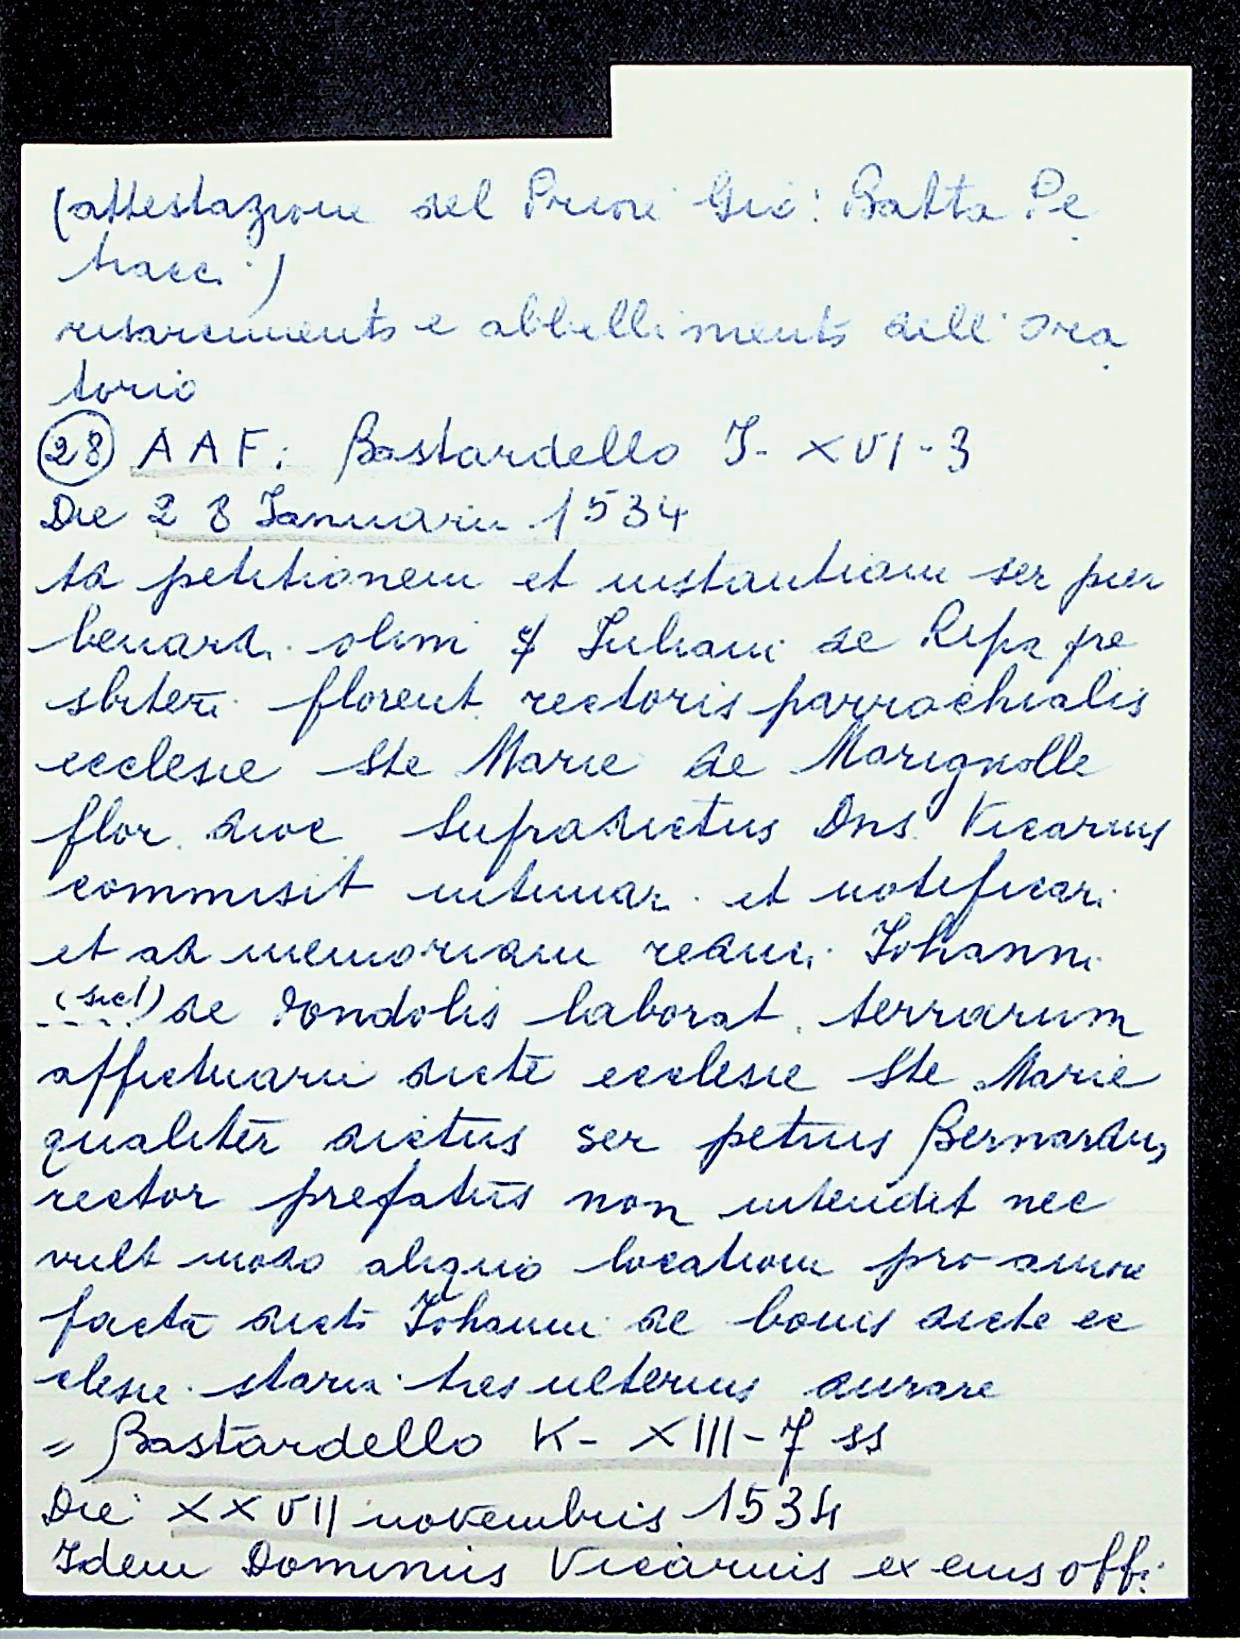 (attestazione del Priore Gio: Batta Pe
tracci)
risarcimento e abbellimento dell'Ora
torio
(28) AAF: Bastardello J- XVI-3
Die 28 Januarii 1534
ad petitionem et instantiam ser pier
benardi olim Juliani de Ripa pre
sbiteri florent. rectoris parrochialis
ecclesie Ste Marie de Marignolle
flor. dioc supradictus Dns. Vicarius
commisit intimar. et notificari
et ad memoriam reduci Johanni
(sic!) de dondolis laborat. terrarum
affictuarii dicte ecclesie Ste Marie
qualiter dictus ser petrus Bernardus
rector prefatus non intendit nec
vult modo aliquo locationem pro annore
facta dicto Johanni de bonis dicte ec
clesie staria tres ulterius durare
= Bastardello K- XIII-7 ss
Die XXVII novembris 1534
Idem Dominus Vicarius ex eius offi